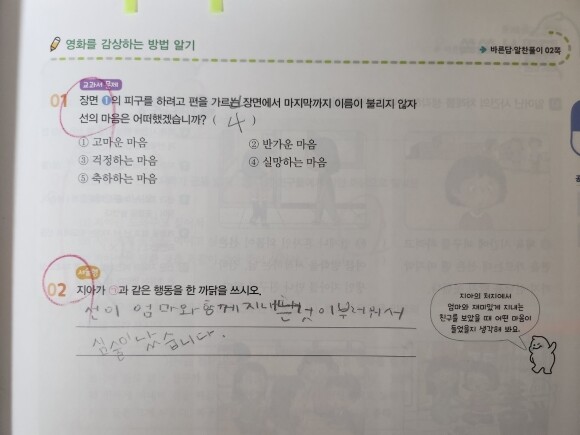 영화를 감상하는 방법 알기
바른답·알찬풀이 02쪽
교과서 문제
01 장면 ❶의 피구를 하려고 편을 가르는 장면에서 마지막까지 이름이 불리지 않자
선의 마음은 어떠했겠습니까? ( 4 )
① 고마운 마음 ② 반가운 마음
③ 걱정하는 마음 ④ 실망하는 마음
⑤ 축하하는 마음
서술형
02 지아가 과 같은 행동을 한 까닭을 쓰시오.
선이 엄마와 함께 지내는 것이 부러워서
심술이 났습니다.
지아의 처지에서
엄마와 재미있게 지내는
친구를 보았을 때 어떤 마음이
들었을지 생각해 봐요.